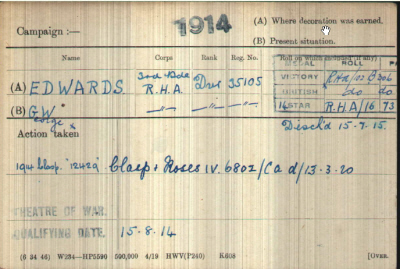 1914
Campaign :—
(A) Where decoration was earned.
(B) Present situation.
Name Corps Rank Reg. No. Roll on which included (if any)
MEDAL ROLL
(A) EDWARDS 3rd Bde R.H.A. Dvr 35105
VICTORY
BRITISH do do
(B) G.W. 14 STAR R.H.A/16 73
Action taken
Disch'd 15-7-15.
Clasp + Roses IV. 6802/Cad/13-3-20
THEATRE OF WAR.
QUALIFYING DATE. 15-8-14
(6 34 46) W234—HP5590 500,000 4/19 HWV(P240) K608 [OVER.